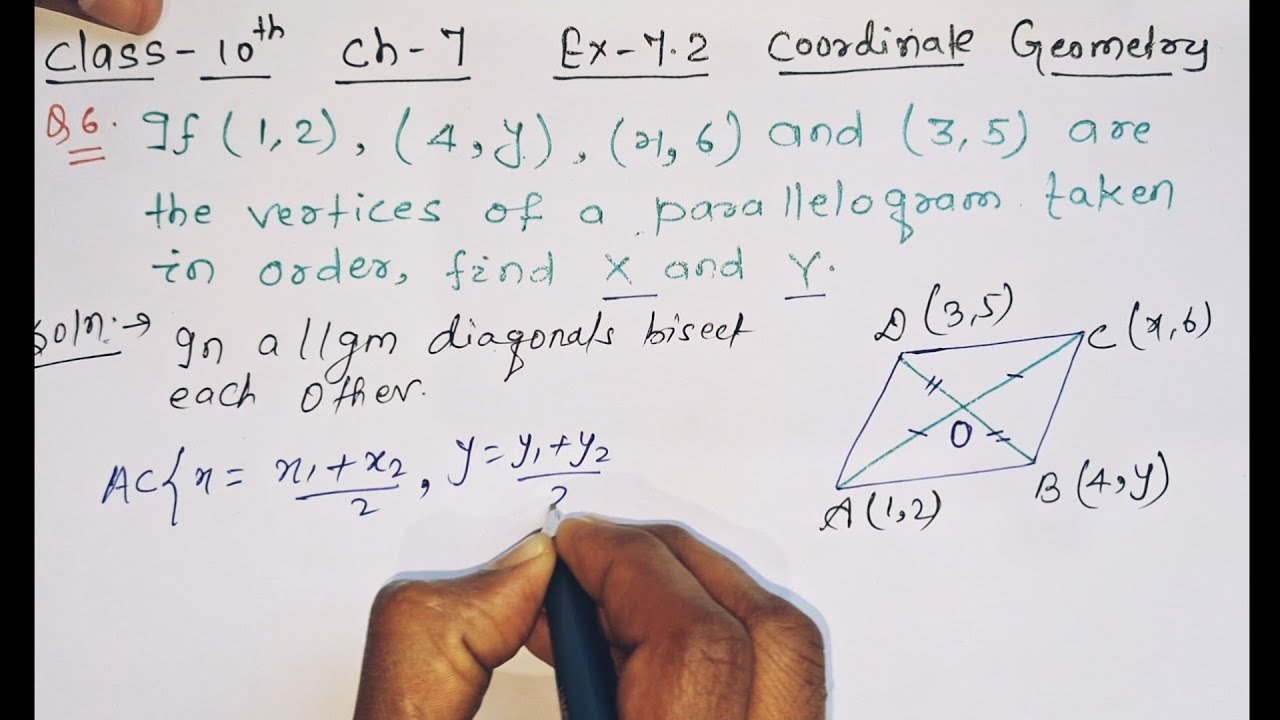 Class - 10th Ch - 7 Ex - 7.2 Coordinate Geometry
Q 6. If (1, 2), (4, y), (x, 6) and (3, 5) are
the vertices of a parallelogram taken
in order, find X and Y.
Soln. → In a ||gm diagonals bisect
each other.
AC{ x = x₁ + x₂ / 2, y = y₁ + y₂ / 2
D (3, 5)
C (x, 6)
O
A (1, 2)
B (4, y)